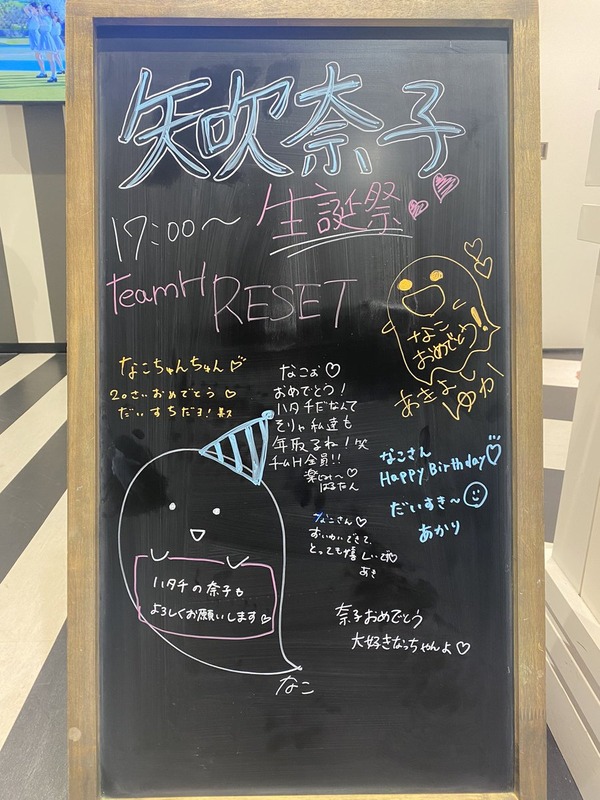 矢吹奈子
17:00～ 生誕祭
teamH RESET
なこ
おめでとう!
あきよし
ゆか
なこちゃんちゅん
20さいおめでとう
だいすきだヨ!
なこぉ
おめでとう!
ハタチだなんて
そりゃ私達も
年取るね!笑
チームH全員!!
楽しも〜
はるたん
なこさん
Happy Birthday
だいすき～
あかり
なこさん
おいわいできて、
とっても嬉しいです
あき
ハタチの奈子も
よろしくお願いします
なこ
奈子おめでとう
大好きなっちゃんよ